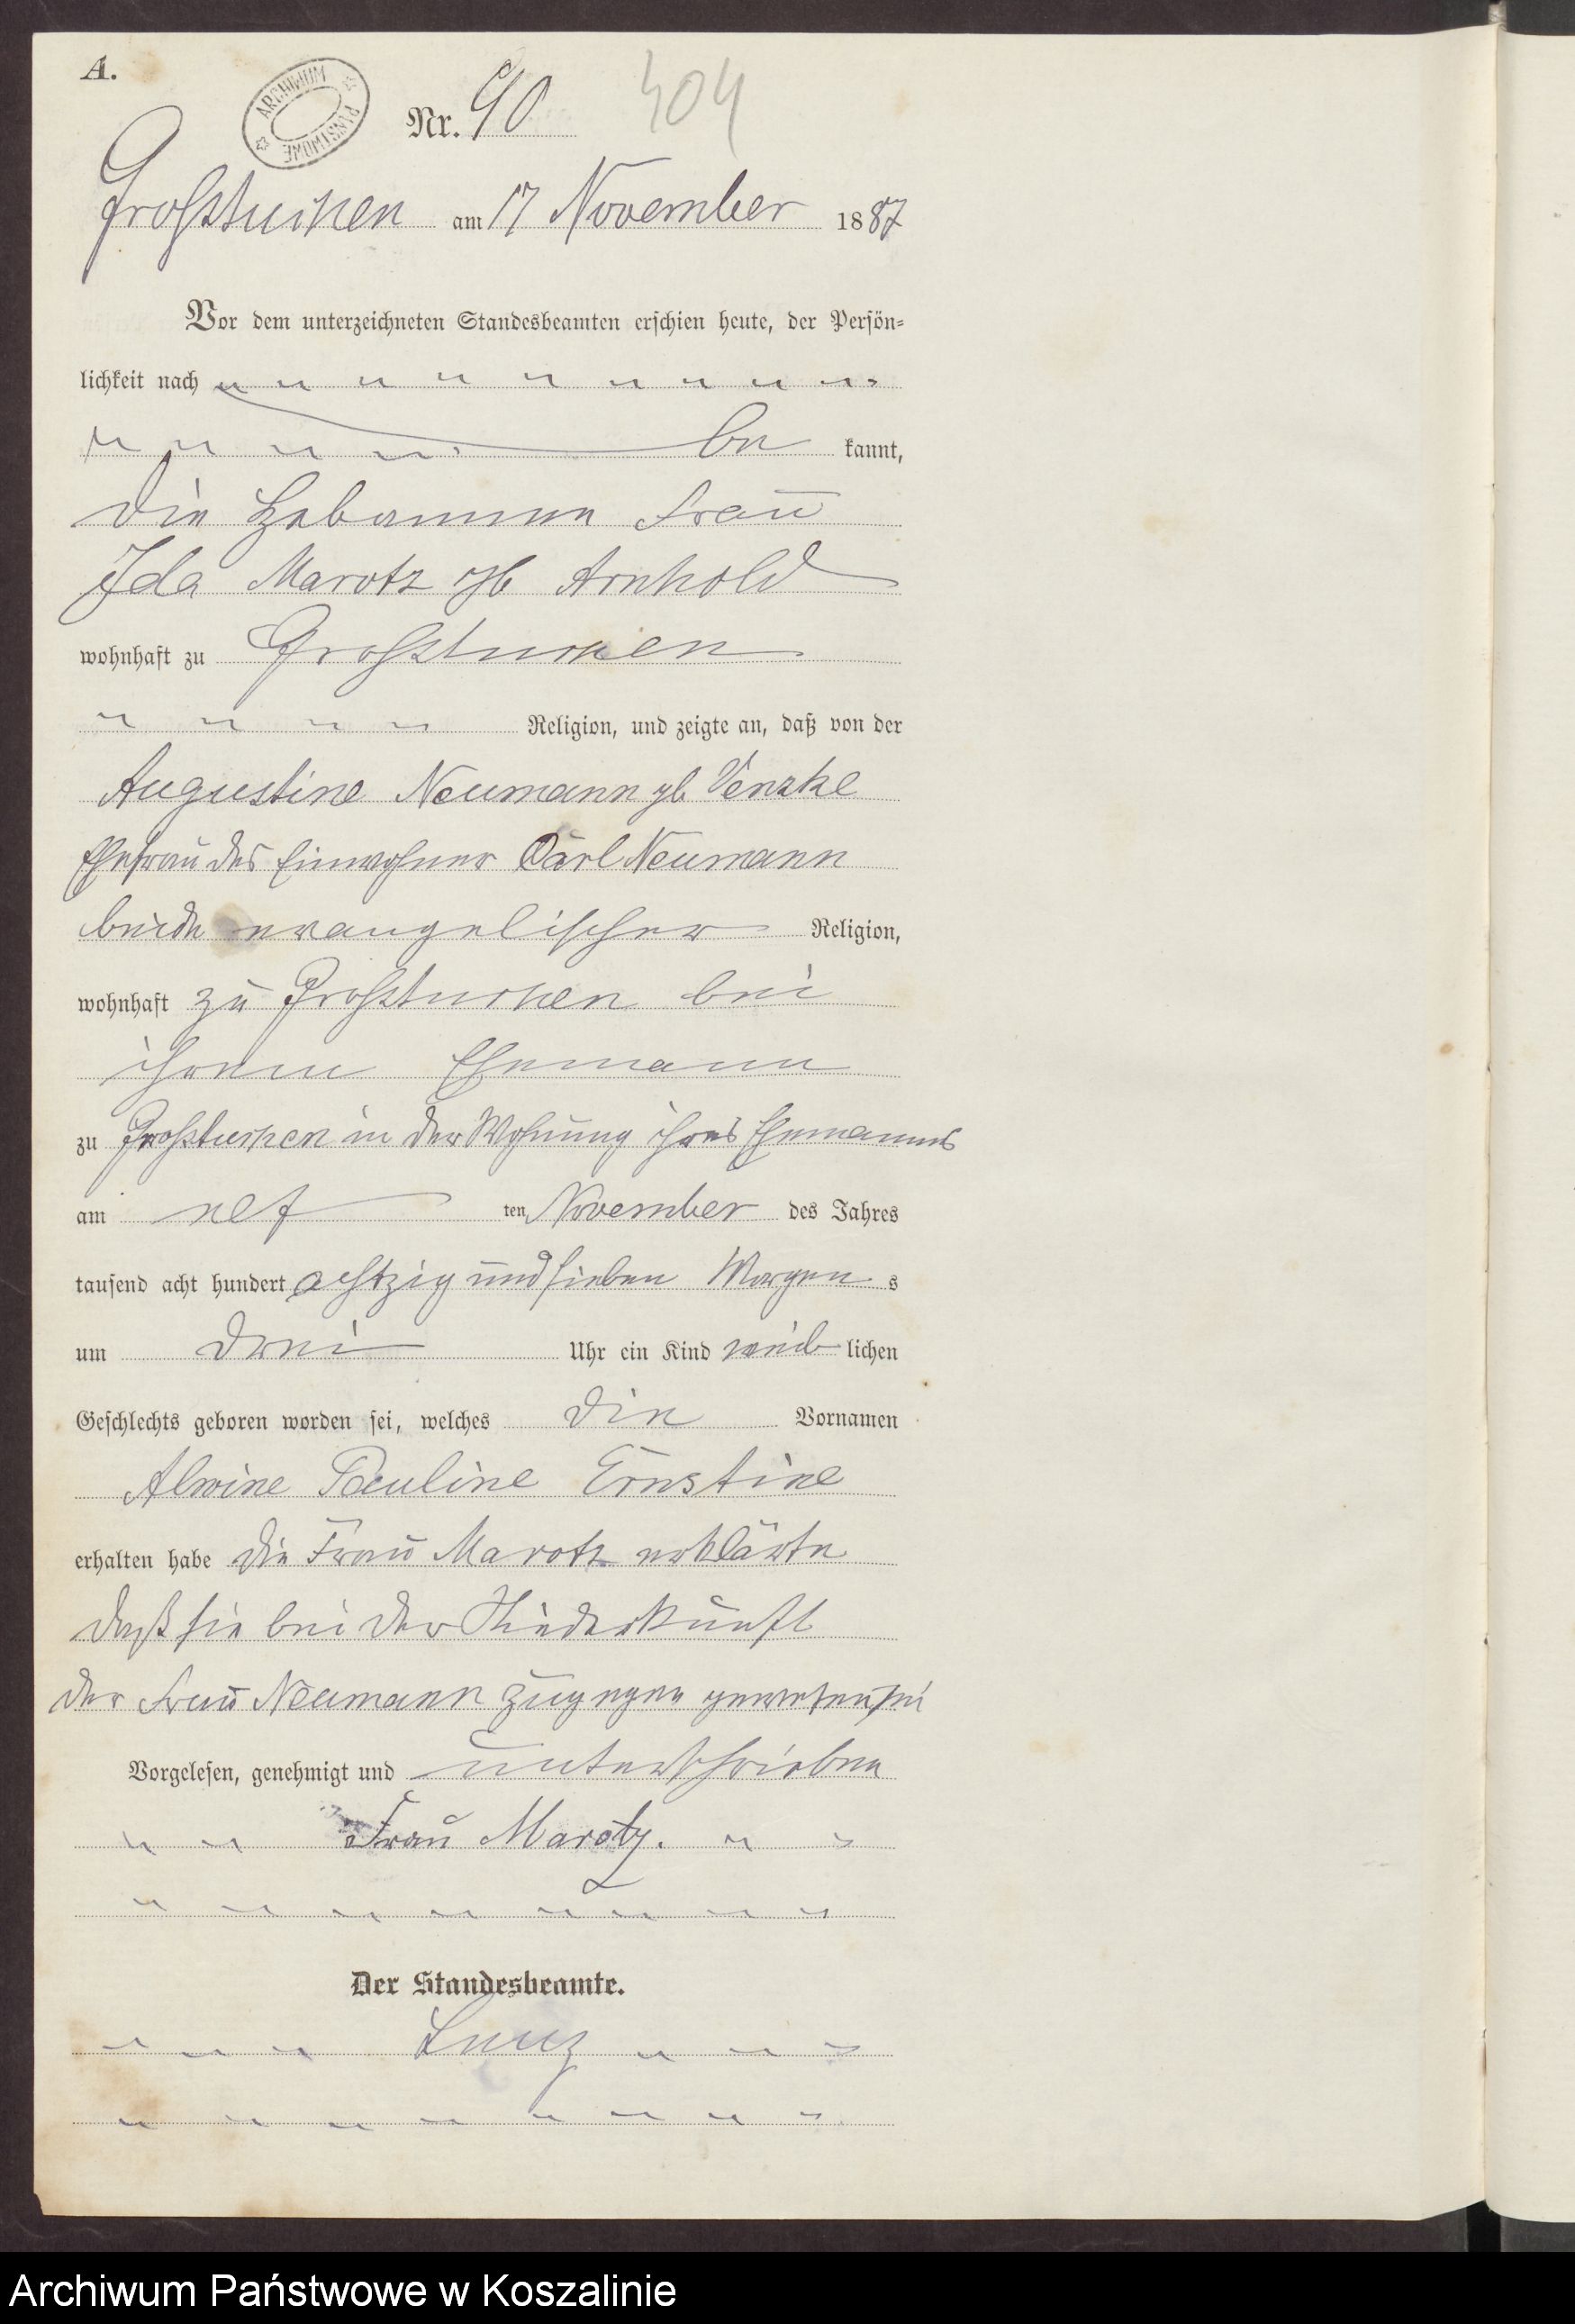 A.
ARCHIWUM PAŃSTWOWE
Nr. 90 404
Großtuchen am 17 November 1887
Vor dem unterzeichneten Standesbeamten erschien heute, der Persön-
lichkeit nach
be kannt,
die Hebamme Frau
Ida Marotz gb Arnhold
wohnhaft zu Großtuchen
Religion, und zeigte an, daß von der
Augustine Neumann gb Venzke
Ehefrau des Einwohner Carl Neumann
beide evangelischer Religion,
wohnhaft zu Großtuchen bei
ihrem Ehemann
zu Großtuchen in der Wohnung ihres Ehemanns
am elf ten November des Jahres
tausend acht hundert achtzig und sieben Morgen s
um drei Uhr ein Kind weib lichen
Geschlechts geboren worden sei, welches die Vornamen
Alwine Pauline Ernstine
erhalten habe die Frau Marotz erklärte
daß sie bei der Niederkunft
der Frau Neumann zugegen gewesen sei
Vorgelesen, genehmigt und unterschrieben
Frau Marotz.
Der Standesbeamte.
Archiwum Państwowe w Koszalinie